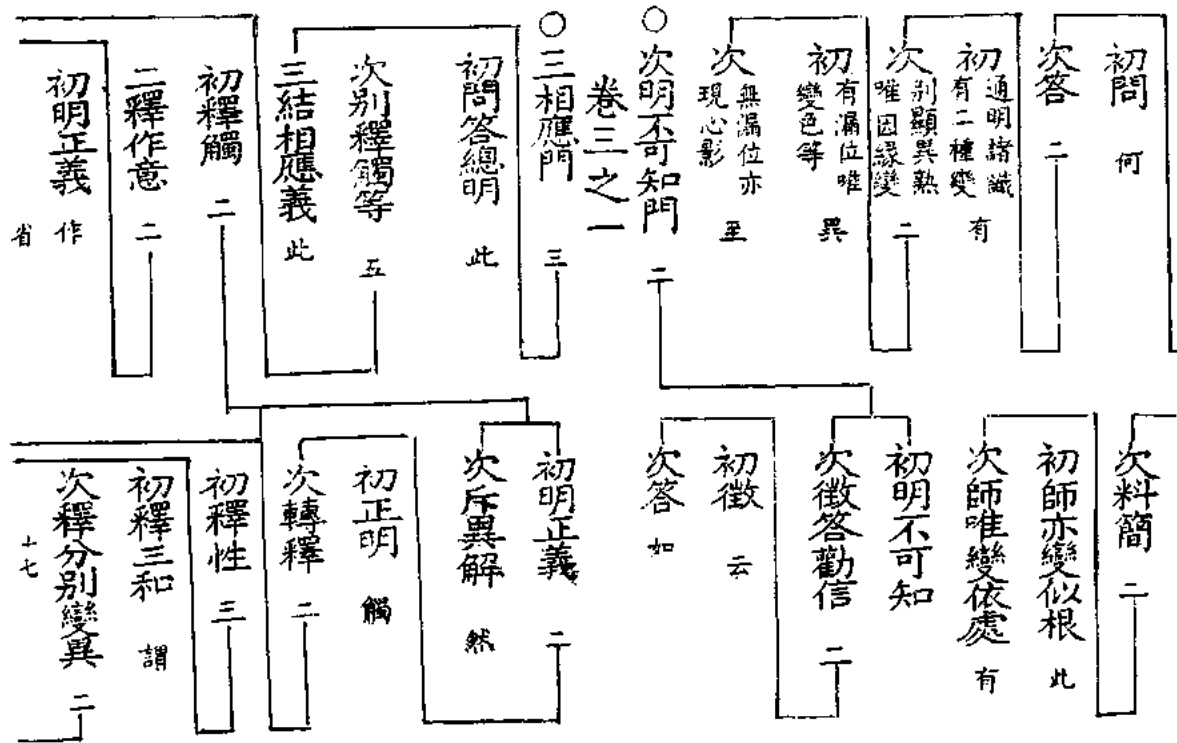 初問 何
次答 二
初 通明諸識有二種變 有
次 別顯異熟唯因緣變 二
初 有漏位唯變色等 異
次 無漏位亦現心影 至
○次明不可知門 二
卷三之一
○三相應門 三
初問答總明 此
次別釋觸等 五
三結相應義 此
初釋觸 二
二釋作意 二
初明正義 作
省
次料簡 二
初師亦變似根 此
次師唯變依處 有
初明不可知
次徵答勸信 二
初徵 云
次答 如
初明正義 二
次斥異解 然
初正明 觸
次轉釋 二
初釋性 三
初釋三和 謂
次釋分別變異 二
十七